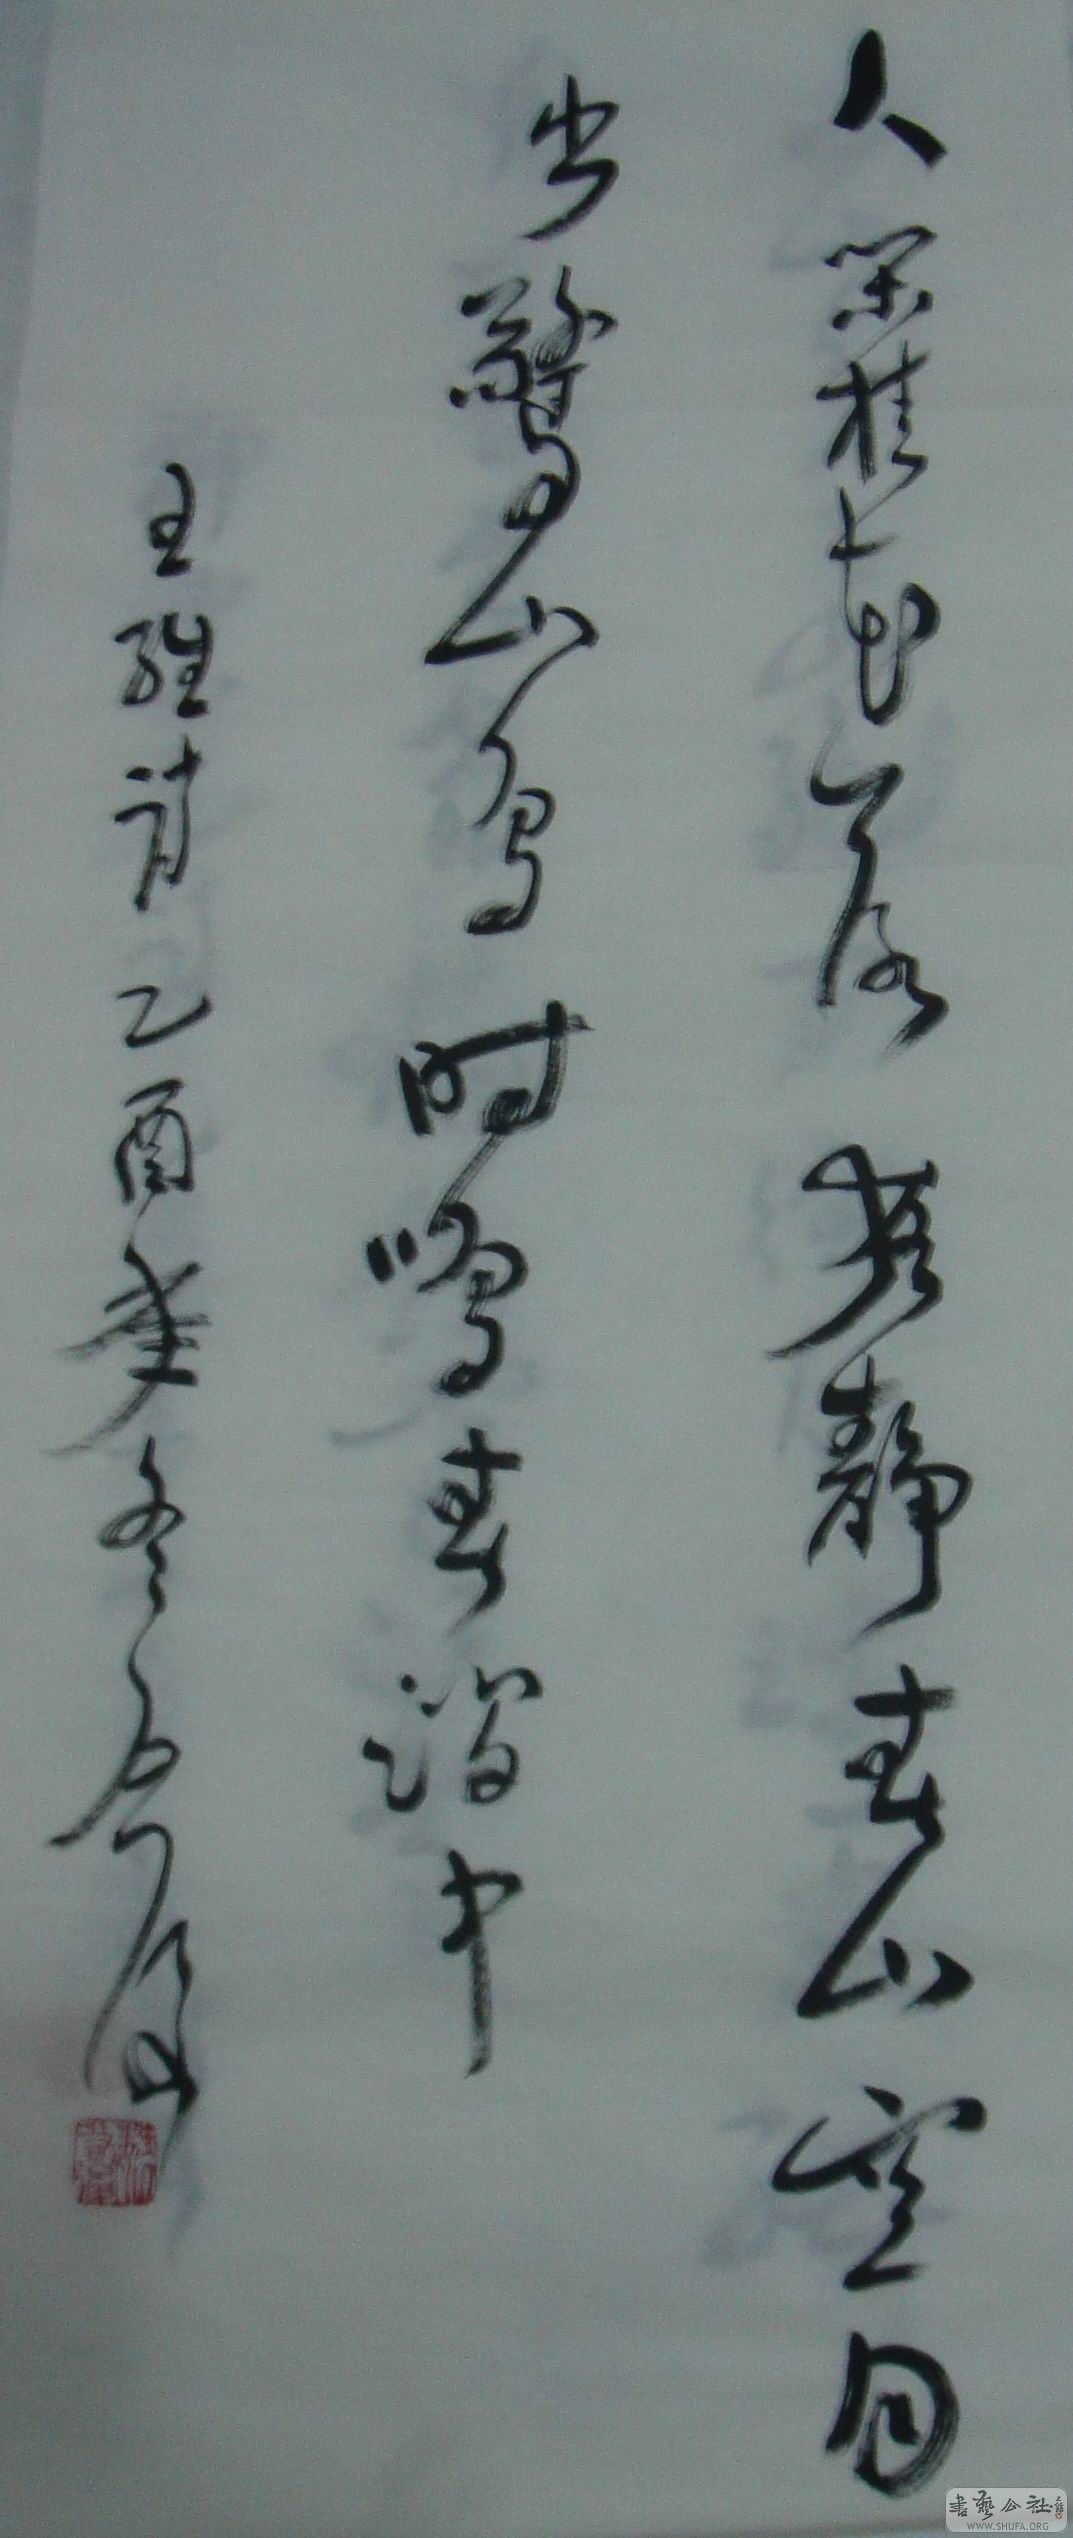 人闲桂花落夜静春山空月
出驚山鸟时鸣春涧中
王維诗乙酉年冬月
書藝公社
WWW.SHUFA.ORG